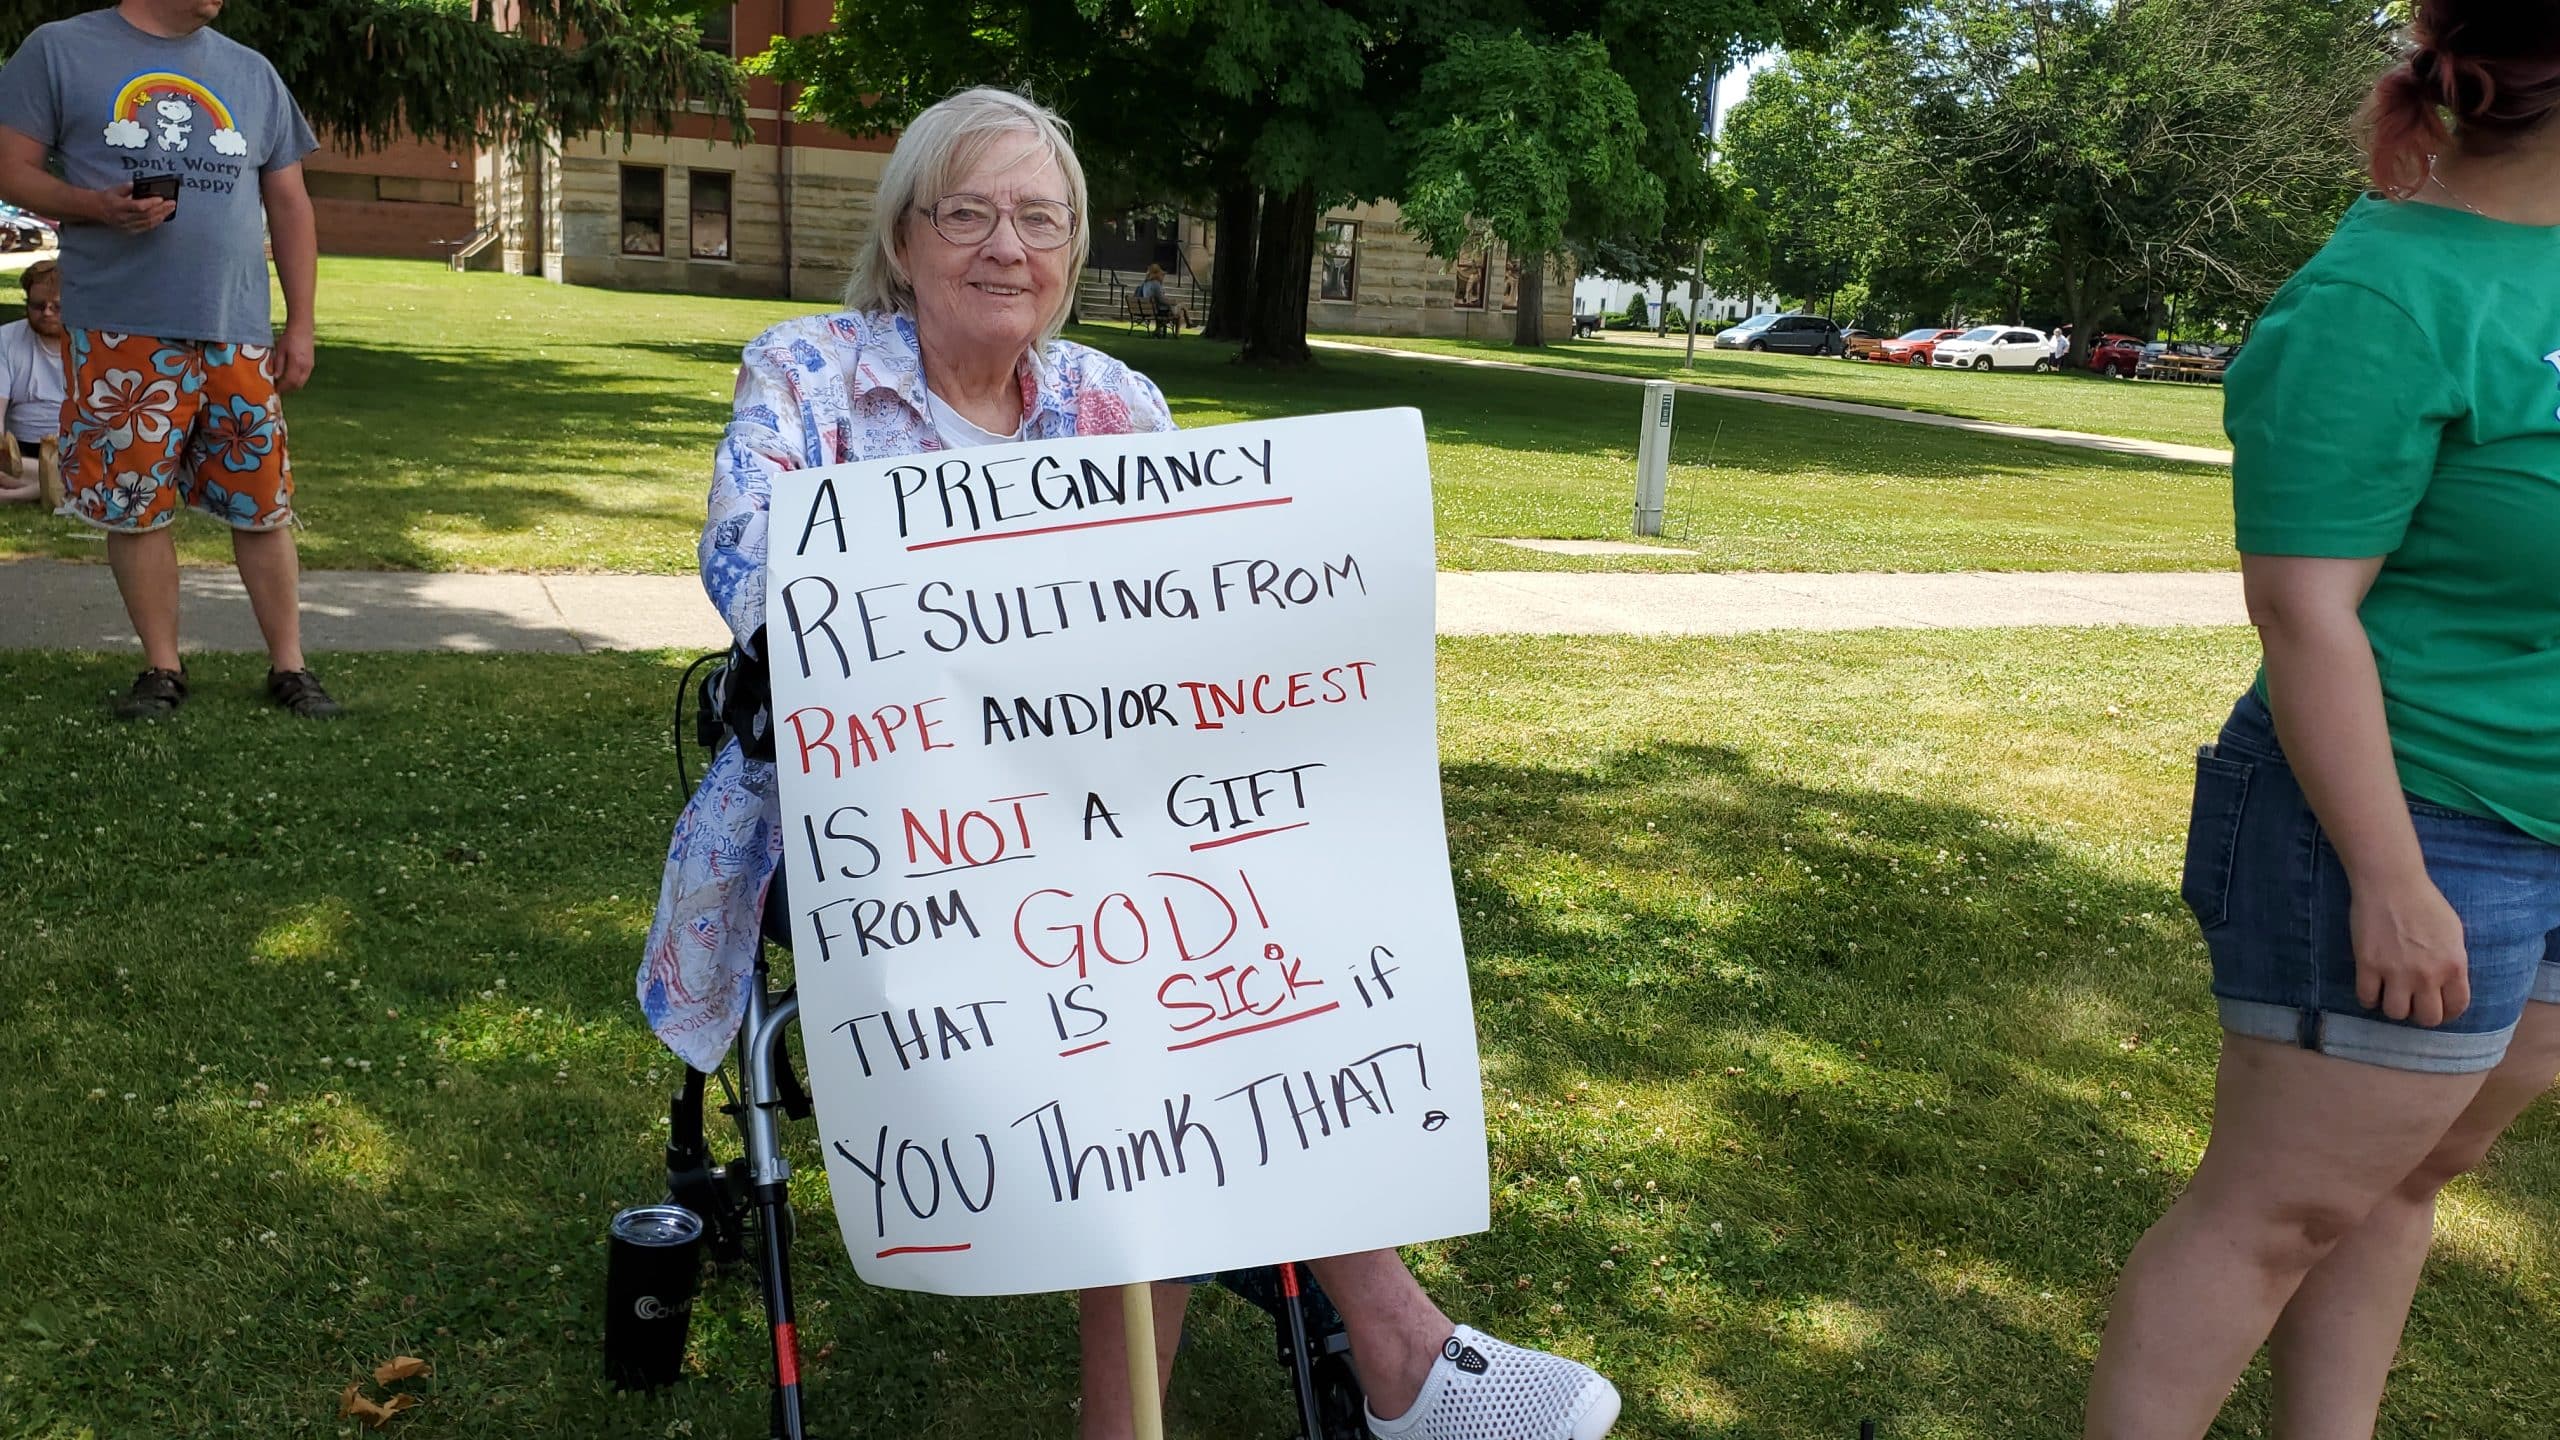 Don't Worry
A PREGNANCY
RESULTING FROM
RAPE AND/OR INCEST
IS NOT A GIFT
FROM GOD!
THAT IS SICK if
YOU Think THAT!